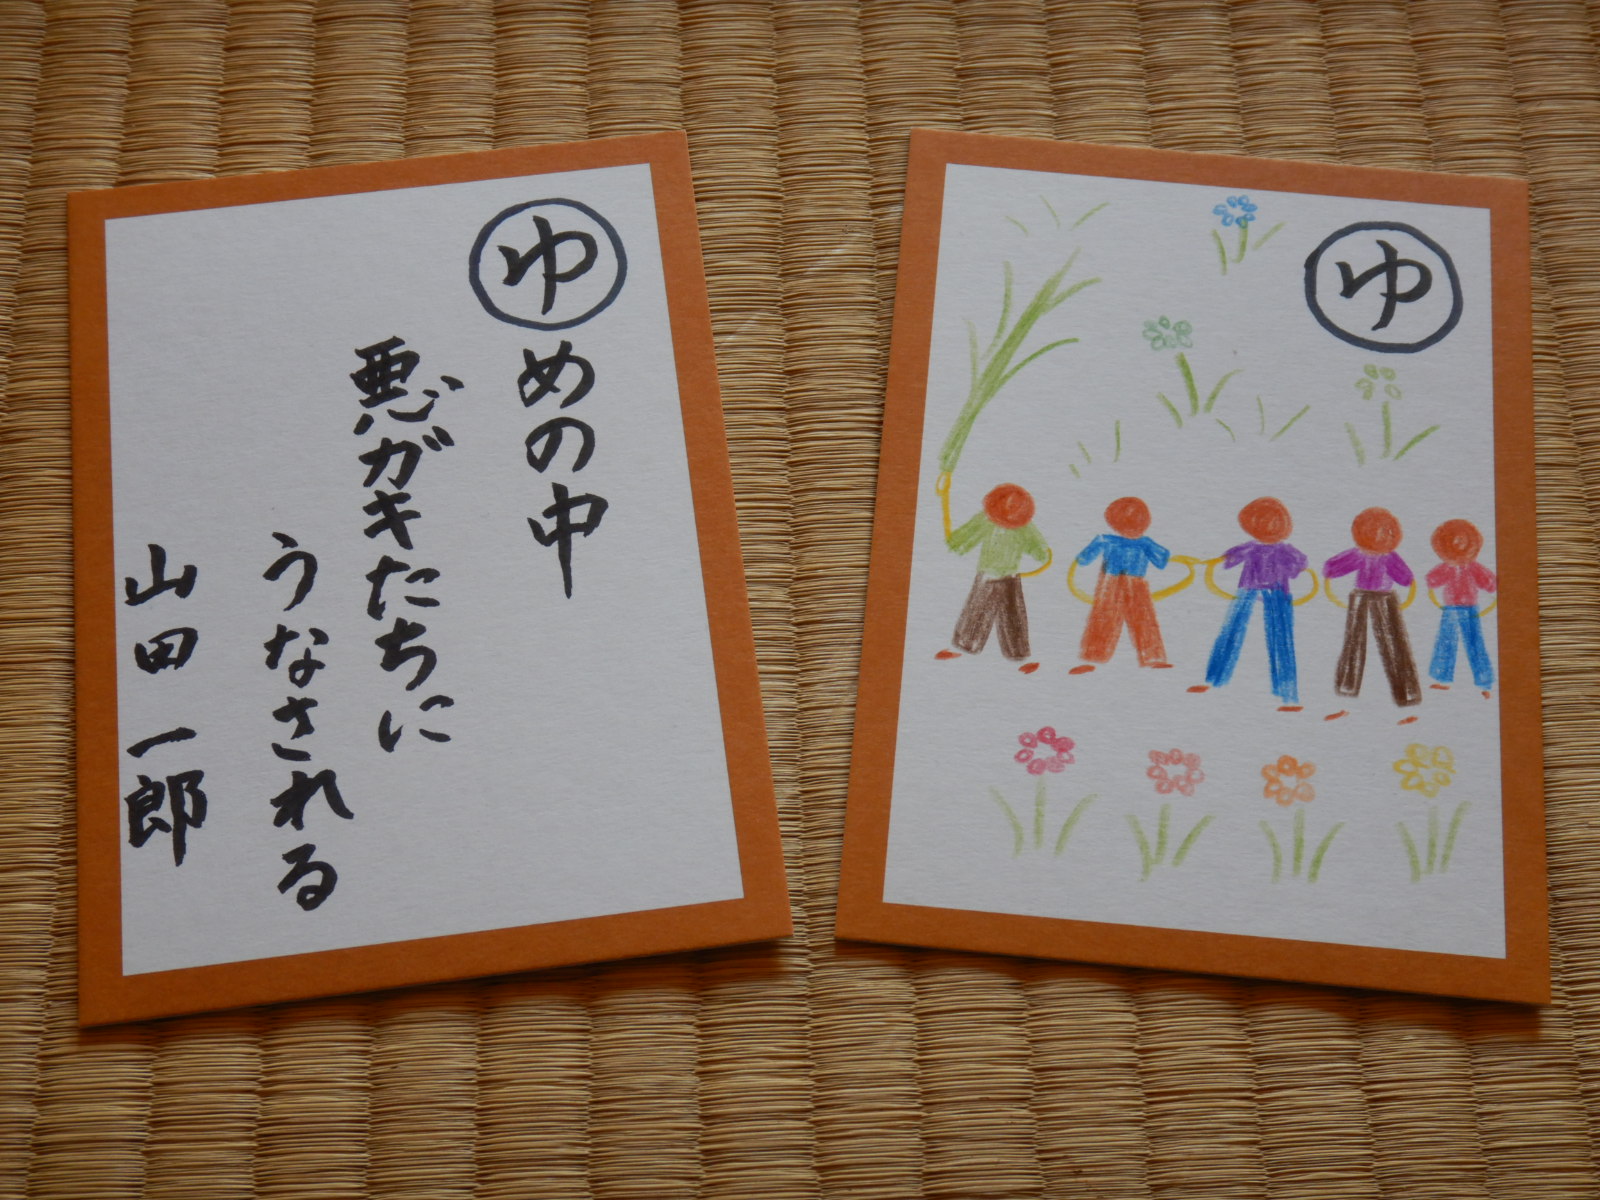 ゆめの中
悪ガキたちに
うなされる
山田一郎
ゆ